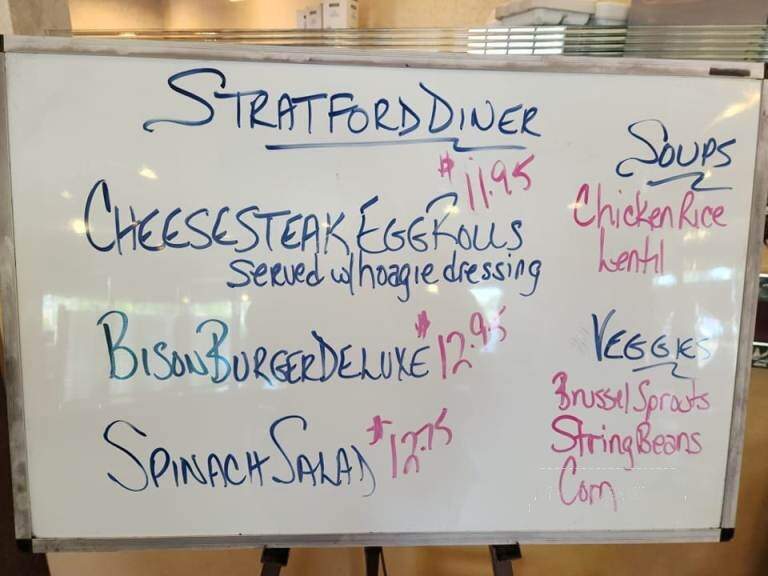 STRATFORD DINER
$11.95
CHEESESTEAK EGGROLLS
served w/hoagie dressing
BISON BURGER DELUXE $12.95
SPINACH SALAD $12.75
SOUPS
Chicken Rice
Lentil
VEGGIES
Brussel Sprouts
String Beans
Corn